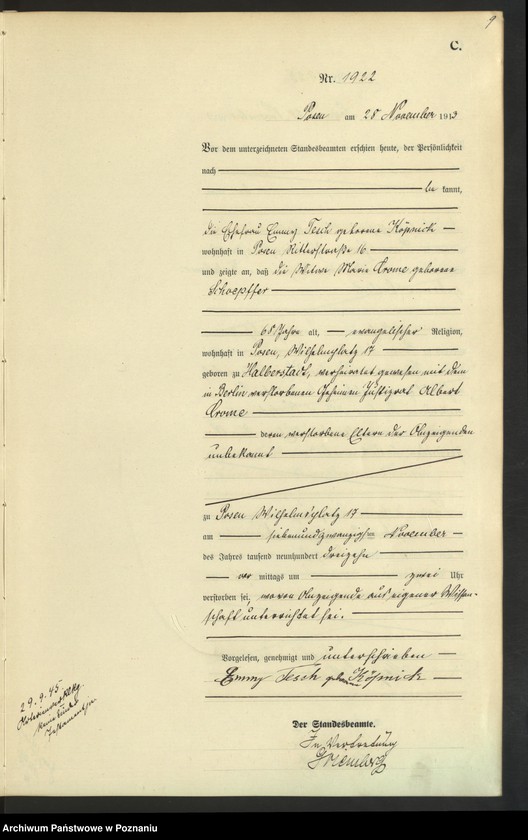 9
C.
Nr. 1922
Posen am 28 November 1913
Vor dem unterzeichneten Standesbeamten erschien heute, der Persönlichkeit
nach
kannt,
die Ehefrau Emmy Tesch geborene Köpnick
wohnhaft in Posen Ritterstraße 16
und zeigte an, daß die Witwe Marie Krome geborene
Schoepffer
68 Jahre alt, evangelischer Religion,
wohnhaft in Posen, Wilhelmsplatz 17
geboren zu Halberstadt, verheiratet gewesen mit dem
in Berlin verstorbenen Geheimen Justizrat Albert
Krome
deren verstorbene Eltern der Anzeigenden
unbekannt
zu Posen Wilhelmsplatz 17
am siebenundzwanzigsten November
des Jahres tausend neunhundert dreizehn
vor mittags um zwei Uhr
verstorben sei, wovon Anzeigende aus eigener Wissen-
schaft unterrichtet sei.
Vorgelesen, genehmigt und unterschrieben
Emmy Tesch geb. Köpnick
29.9.45
Der Standesbeamte.
In Vertretung
Archiwum Państwowe w Poznaniu